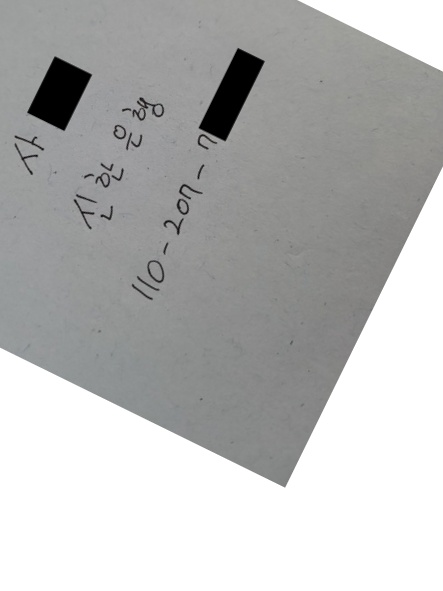 사
신한은행
110-207-7